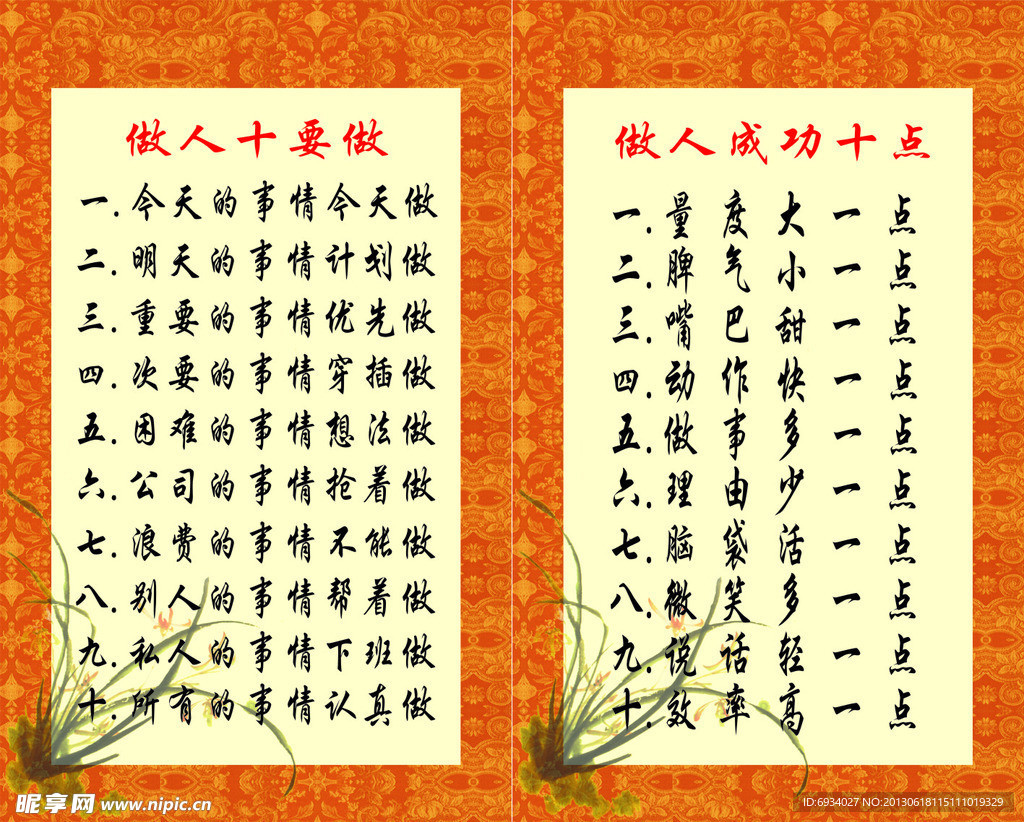 做人十要做
一.今天的事情今天做
二.明天的事情计划做
三.重要的事情优先做
四.次要的事情穿插做
五.困难的事情想法做
六.公司的事情抢着做
七.浪费的事情不能做
八.别人的事情帮着做
九.私人的事情下班做
十.所有的事情认真做
做人成功十点
一.量度大一点
二.脾气小一点
三.嘴巴甜一点
四.动作快一点
五.做事多一点
六.理由少一点
七.脑袋活一点
八.微笑多一点
九.说话轻一点
十.效率高一点
昵享网 www.nipic.cn
ID:6934027 NO:20130618115111019329